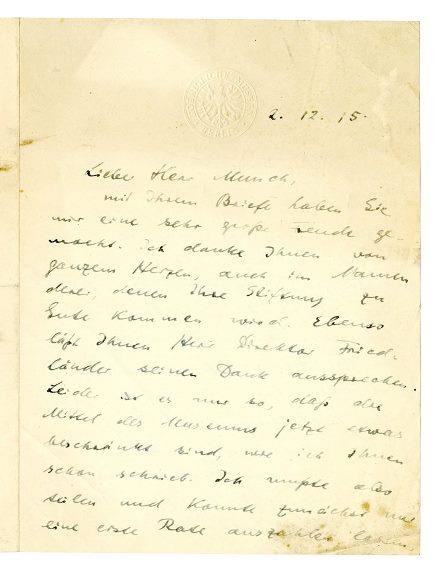 2. 12. 15.
Lieber Herr Munch,
mit Ihrem Briefe haben Sie
mir eine sehr große Freude ge-
macht. Ich danke Ihnen von
ganzem Herzen, auch im Namen
derer, denen Ihre Stiftung zu
Gute kommen wird. Ebenso
läßt Ihnen Herr Direktor Fried-
länder seinen Dank aussprechen.
Leider ist es nur so, daß die
Mittel des Museums jetzt etwas
beschränkt sind, wie ich Ihnen
schon schrieb. Ich mußte also
teilen und konnte zunächst nur
eine erste Rate auszahlen lassen